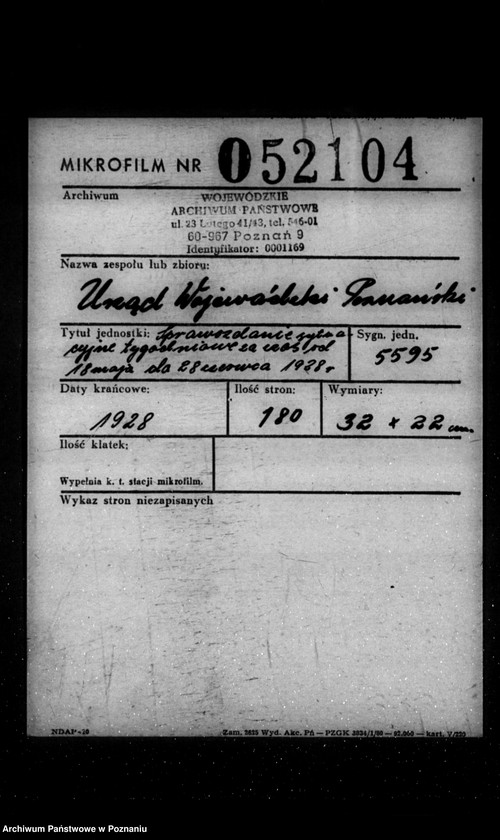 MIKROFILM NR 052104
Archiwum
WOJEWÓDZKIE
ARCHIWUM PAŃSTWOWE
ul. 23 Lutego 41/43, tel. 546-01
60-967 Poznań 9
Identyfikator: 0001169
Nazwa zespołu lub zbioru:
Urząd Wojewódzki Poznański
Tytuł jednostki: Sprawozdanie sytua
cyjne tygodniowe za czas od
18 maja do 28 czerwca 1928 r
Sygn. jedn.
5595
Daty krańcowe:
1928
Ilość stron:
180
Wymiary:
32 x 22 cm.
Ilość klatek:
Wypełnia k. t. stacji mikrofilm.
Wykaz stron niezapisanych
NDAP-20
Zam. 2825 Wyd. Akc. Pń — PZGK — kart. V/220
Archiwum Państwowe w Poznaniu